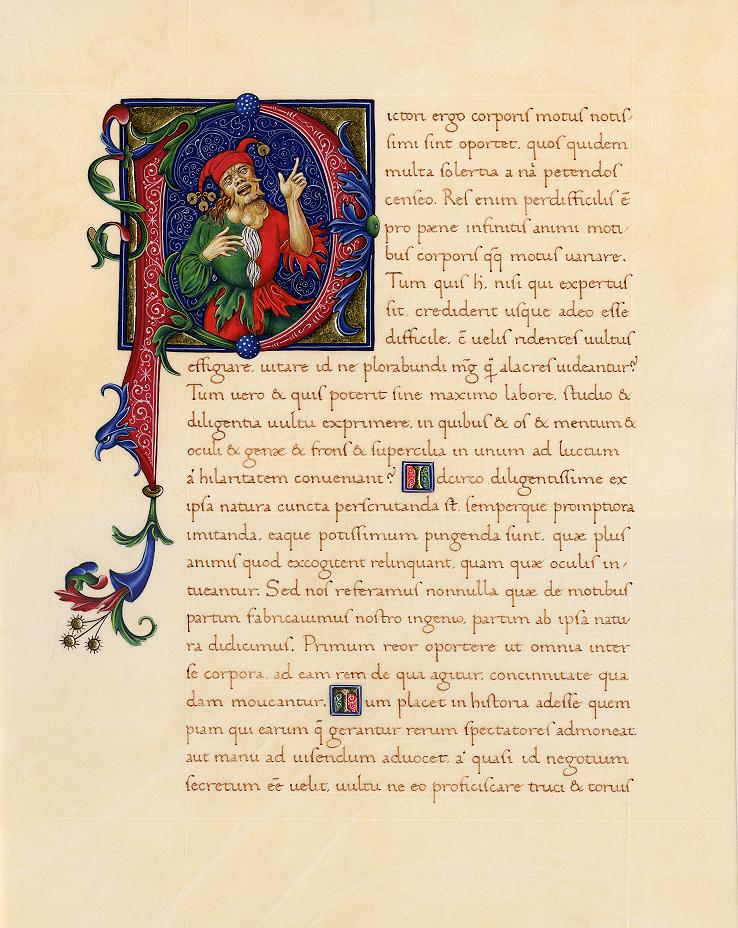 Pictori ergo corporis motus notis-
simi sint oportet, quos quidem
multa solertia a nā petendos
censeo. Res enim perdifficilis ē
pro pæne infinitis animi moti-
bus corporis qq̄ motus uariare.
Tum quis h., nisi qui expertus
sit, crediderit usque adeo esse
difficile, c̄ uelis ridentes uultus
effigiare, uitare id ne plorabundi mḡ q̄ alacres uideantur?
Tum uero & quis poterit sine maximo labore, studio &
diligentia uultu exprimere, in quibus & os & mentum &
oculi & genæ & frons & supercilia in unum ad luctum
a' hilaritatem conueniant? Idcirco diligentissime ex
ipsa natura cuncta perscrutanda st̄. semperque promptiora
imitanda, eaque potissimum pingenda sunt, quæ plus
animis quod exccogitent relinquant, quam quæ oculis in-
tueantur. Sed nos referamus nonnulla quæ de motibus
partim fabricauimus nostro ingenio, partim ab ipsa natu-
ra didicimus. Primum reor oportere ut omnia inter
se corpora, ad eam rem de qua agitur, concinnitate qua
dam moueantur. Tum placet in historia adesse quem
piam qui earum q̄ gerantur rerum spectatores admoneat,
aut manu ad uisendum aduocet, a' quasi id negotium
secretum eē uelit, uultu ne eo proficiscare truci & toruis